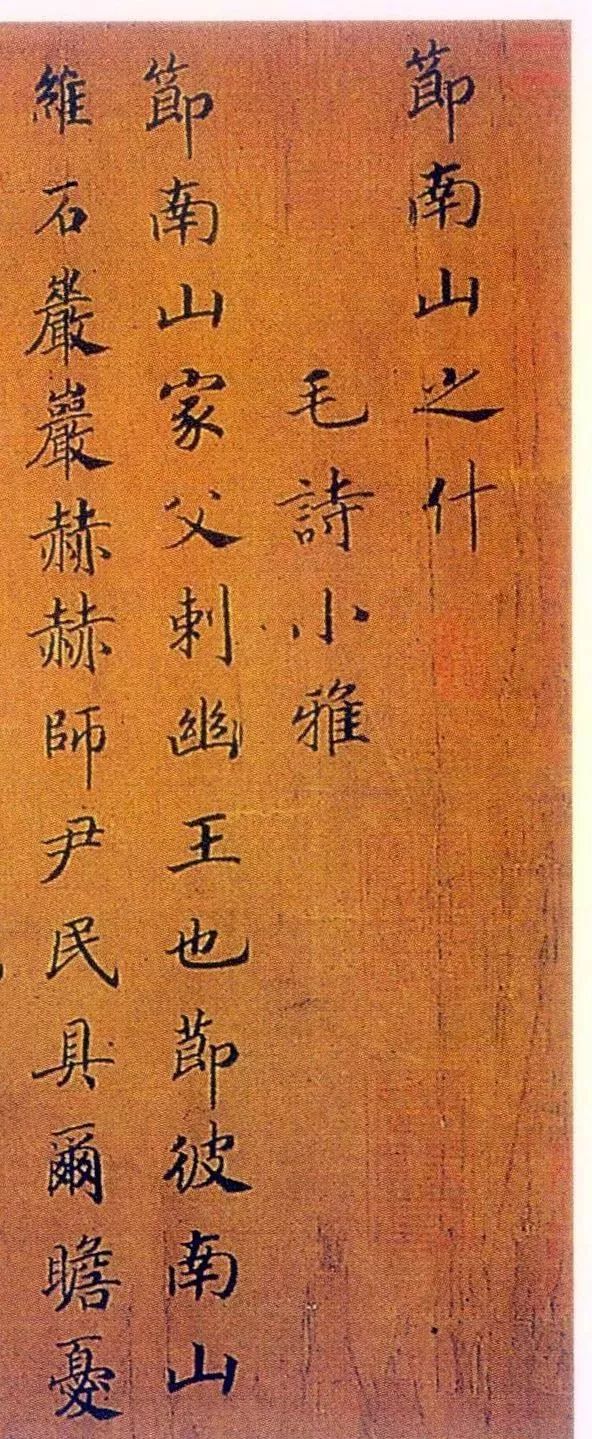 節南山之什
毛詩小雅
節南山家父刺幽王也節彼南山
維石巖巖赫赫師尹民具爾瞻憂